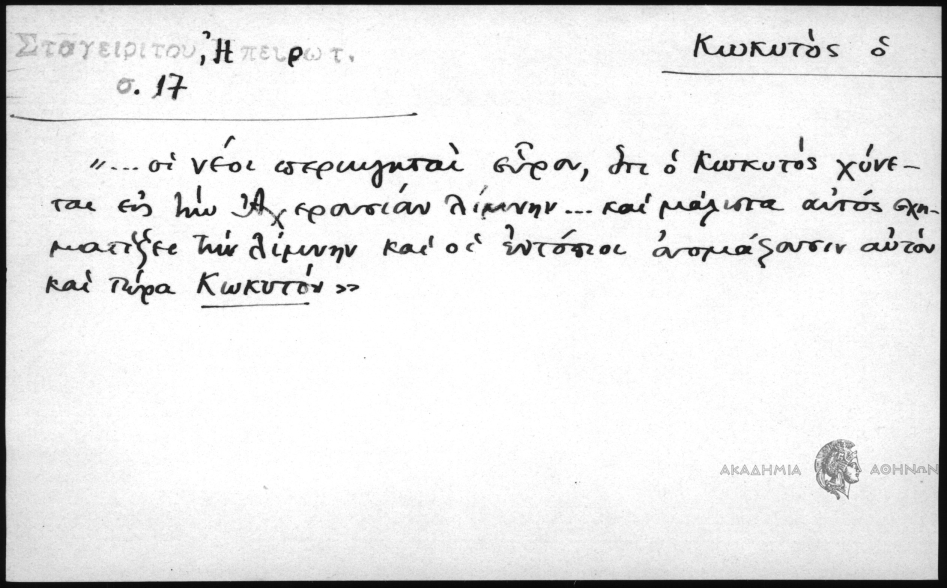 Σταγειρίτου, Ἠπειρωτ.
σ. 17
Κωκυτὸς ὁ
"... οἱ νέοι περιηγηταὶ εὗρον, ὅτι ὁ Κωκυτὸς χύνε-
ται εἰς τὴν Ἀχερουσίαν λίμνην... καὶ μάλιστα αὐτός σχη-
ματίζει τὴν λίμνην καὶ οἱ ἐντόπιοι ὀνομάζουσιν αὐτόν
καὶ τώρα Κωκυτόν»
ΑΚΑΔΗΜΙΑ ΑΘΗΝΩΝ